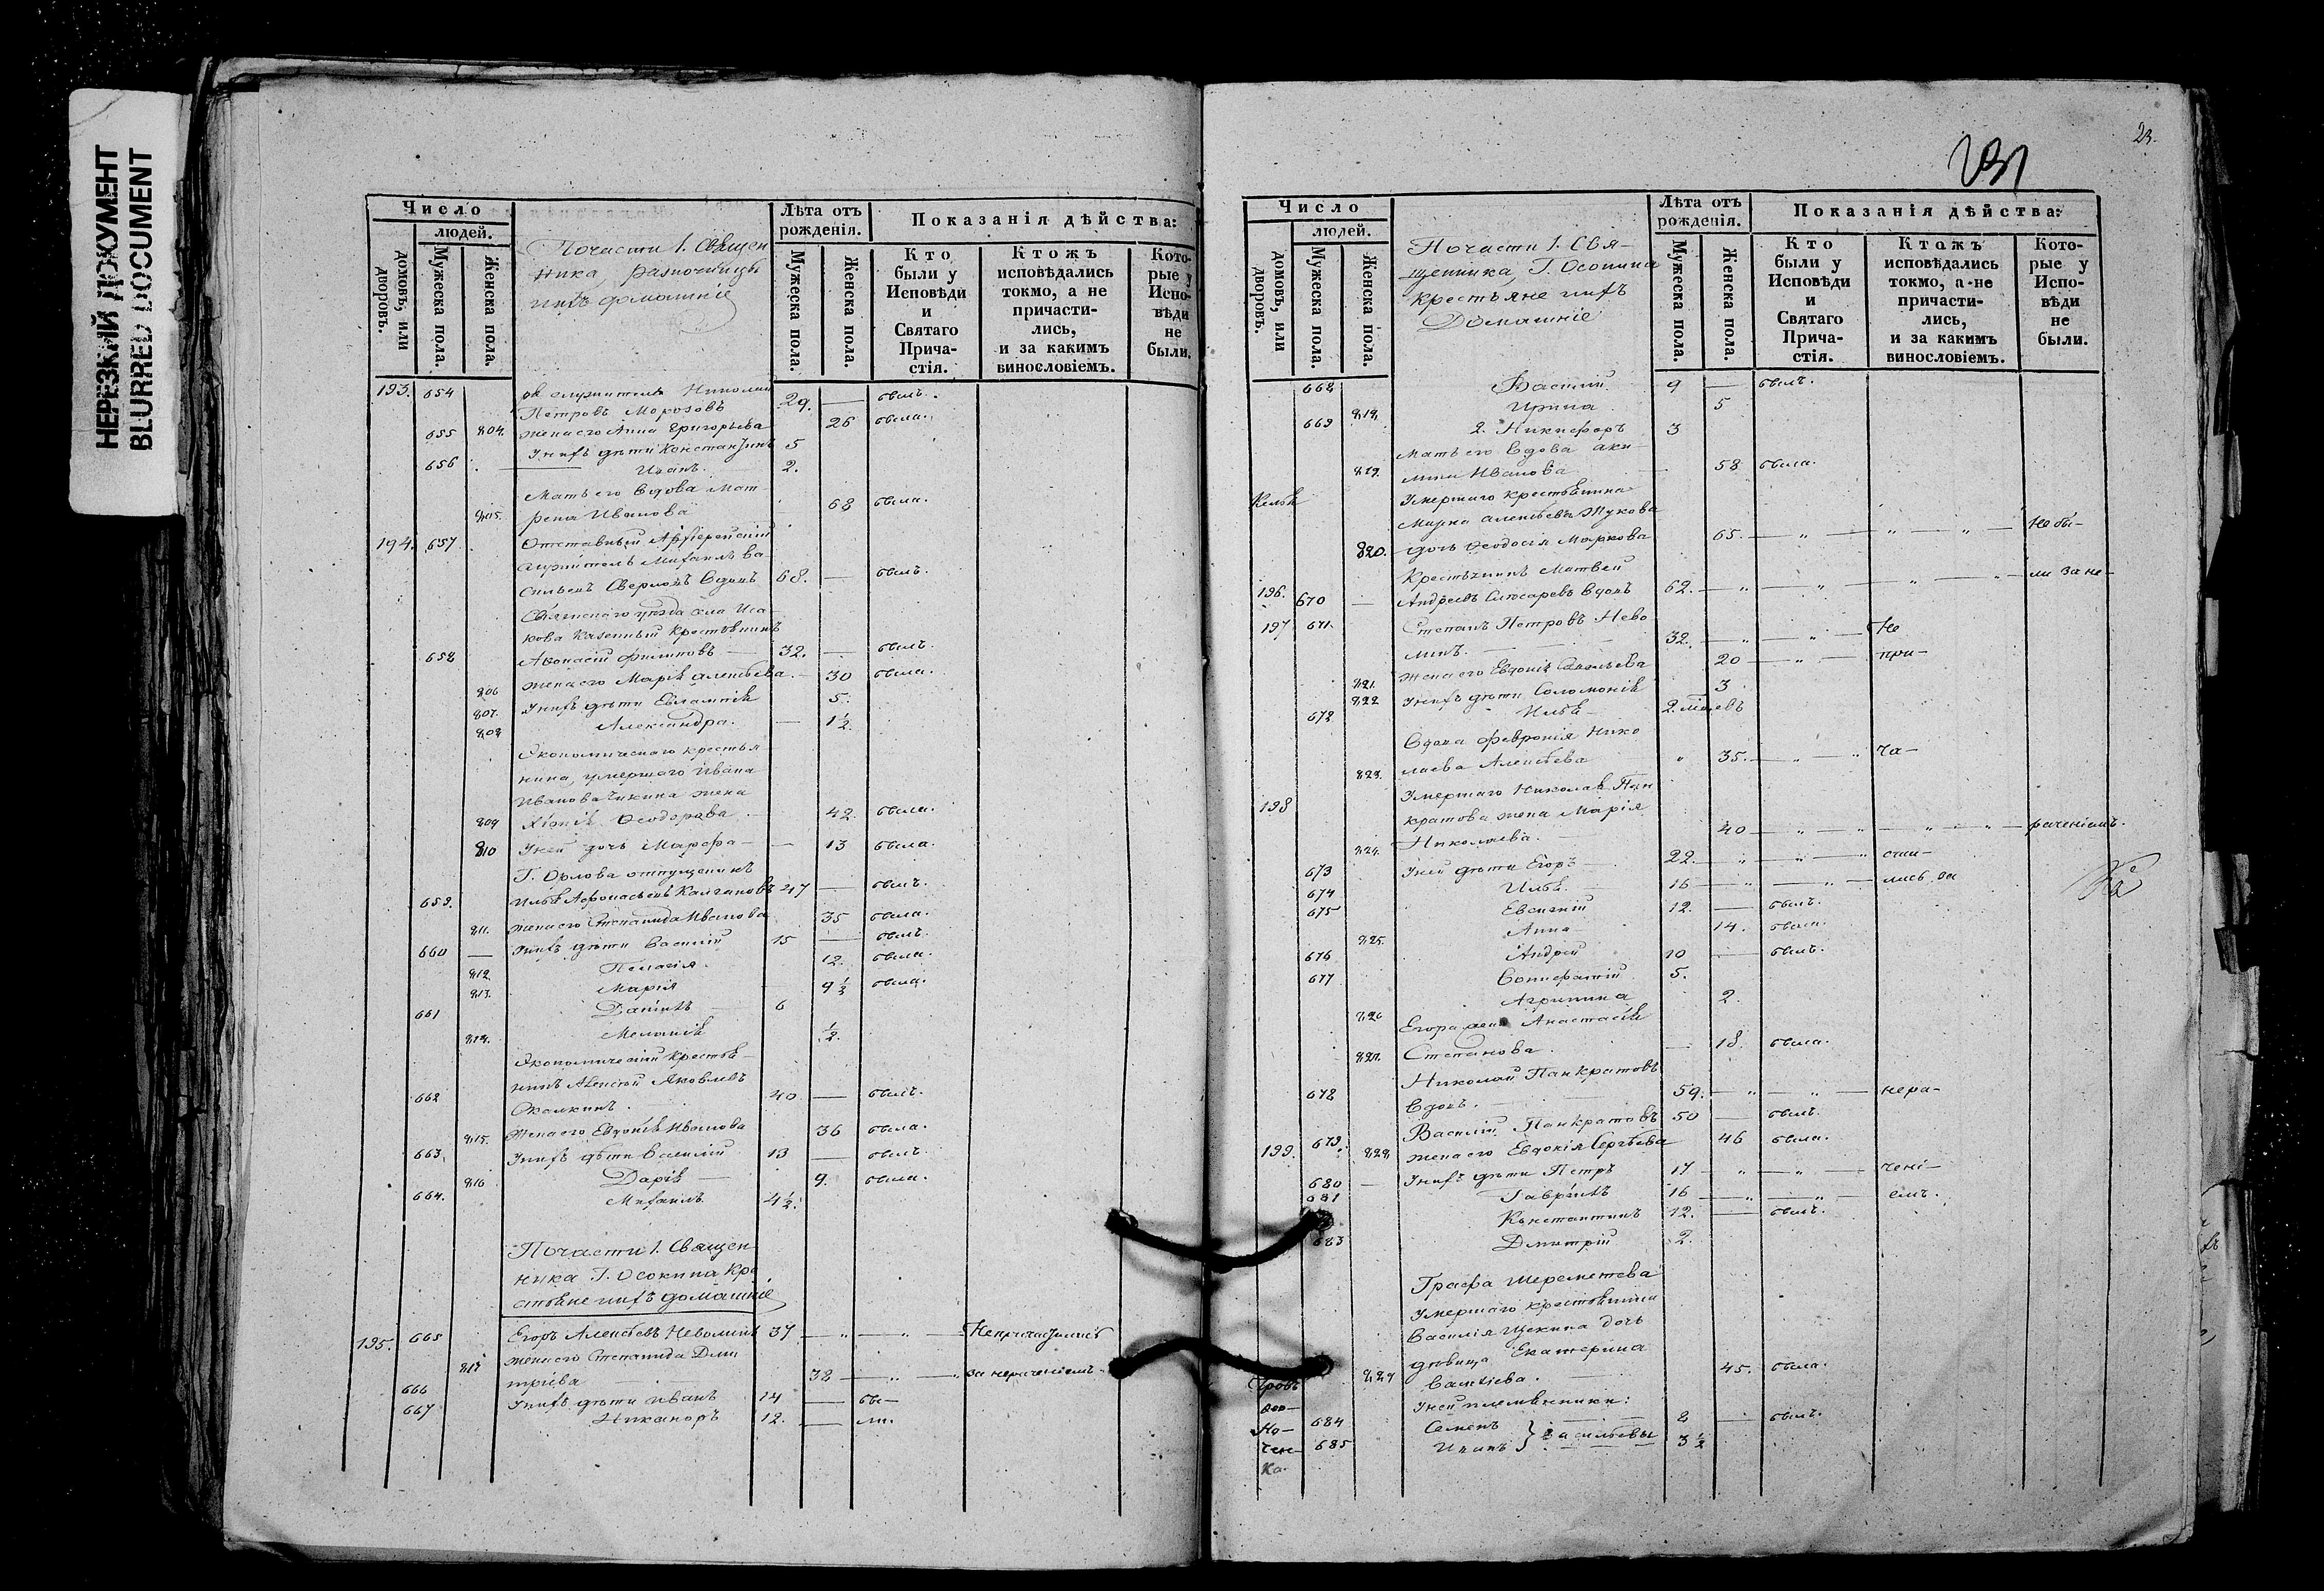 НЕРЕЗКИЙ ДОКУМЕНТ
BLURRED DOCUMENT
Число
людей.
домовъ, или дворовъ.
Мужеска пола.
Женска пола.
Почасти 1. Священ
ника, разночинцы
ихъ домашніе
Лѣта отъ рожденія.
Мужеска пола.
Женска пола.
Показанія дѣйства:
Кто были у Исповѣди и Святаго Прича- стія.
Ктожъ исповѣдались токмо, а не причасти- лись, и за какимъ винословіемъ.
Кото- рые у Испо- вѣди не были.
193. 654 служитель Николай
Петровъ Морозовъ 29. — былъ.
655 804. жена его Анна Григорьева 26 была.
У нихъ дѣти Константинъ 5
656 Иванъ. 2.
Мать его вдова Мат
рена Иванова 68 была.
194. 657 Отставный Архіерейскій
служитель Михаилъ Ва
сильевъ вдовъ 68. — былъ.
кова казенный крестьянинъ
658 Афонасій Филиповъ — 32. — былъ.
806 жена его Марія Алексѣева. — 30 была.
807. У нихъ дѣти Евлампія 5.
808 Александра. — 1½.
Экономическаго крестья
нина, умершаго Ивана
Иванова Чикина жена
809 Хіонія Ѳеодорова. 42. была.
810 У ней дочь Марфа — — 13 была.
Г. Орлова отпущеникъ
659. Илья Афонасьевъ Калгановъ 47 — былъ.
811. жена его Степанида Иванова 35 была.
660 — У нихъ дѣти Василій 15 — былъ.
812 Пелагія. 12. была.
813. Марія 9½ была.
661 Даніилъ — 6
814. Меланія ½.
Экономическій крестья—
нинъ Алексѣй Яковлевъ
662 40 — былъ.
815. Жена его Евдокія Иванова 36 была.
663. У нихъ дѣти Василій 13 — былъ.
816 Дарія — 9. была.
664. Михаилъ 4½.
Почасти 1. Священ
ника Г. Осокина кре
стьяне ихъ домашніе
195. 665 Егоръ Алексѣевъ Неволинъ 37 — „ — „ — Непричастились
817 жена его Степанида Дми
тріева 38 — „ — „ за нераченіемъ.
666 У нихъ дѣти Иванъ 14 — бы—
667 Никаноръ 12. — ли.
23.
231
Число
людей.
домовъ, или дворовъ.
Мужеска пола.
Женска пола.
Почасти 1. Свя—
щенника, Г. Осокина
крестьяне ихъ
Домашніе
Лѣта отъ рожденія.
Мужеска пола.
Женска пола.
Показанія дѣйства:
Кто были у Исповѣди и Святаго Прича- стія.
Ктожъ исповѣдались токмо, а не причасти- лись, и за какимъ винословіемъ.
Кото- рые у Испо- вѣди не были.
668 Василій 9 — былъ.
818 Ирина 5
669 2. Никифоръ 3
Мать его вдова Аки—
819. лина Иванова 58 была.
Келья Умершаго крестьянина
Марка Алексѣева Жукова
820. дочь Ѳеодосія Маркова 65. — „ — „ — „ — Небы—
Крестьянинъ Матвей
196. 670 — Андреевъ Слюсаревъ вдовъ 62. — „ — „ — „ — „ — ли за не—
197 671. Степанъ Петровъ Нево
линъ. 32. — „ — „ — Не
821. Жена его Евдокія 20 — „ — при—
822 У нихъ дѣти Соломонія 3.
672 Илья — 2. мѣсяцевъ
Вдова Февронія Нико
823. лаева Алексѣева „ 35. — „ — „ ча—
198 Умершаго Николая Пан
кратова жена Марія
824. Николаева. 40 — „ — „ — „ — „ — раченіемъ.
673 У ней дѣти Егоръ — 22. — „ — „ — „ сти—
674 Илья. 16 — „ — „ — лись за
675 Евсигній 12. — былъ.
825. Анна 14. была.
676 Андрей 10 — былъ.
677 Вонифатій 5.
826 Агрипина 2.
Егора жена Анастасія
827. Степанова. — 18. была.
Николай Панкратовъ
678 вдовъ. 59. — „ — „ — нера—
Василій Панкратовъ 50 — былъ.
199. 679. 828 жена его Евдокія Сергѣева 46 была.
680 — У нихъ дѣти Петръ 17 — „ — „ — чені—
681 Гавріилъ 16 — „ — „ — емъ.
Константинъ 12. — былъ.
683 Дмитрій 2.
Графа Шереметева
умершаго крестьянина
Василія Щекина дочь
дѣвица Екатерина
829 Васильева. 45. была.
У ней племянники:
684 Семенъ 8 — былъ.
685 Иванъ } Васильевы 3½